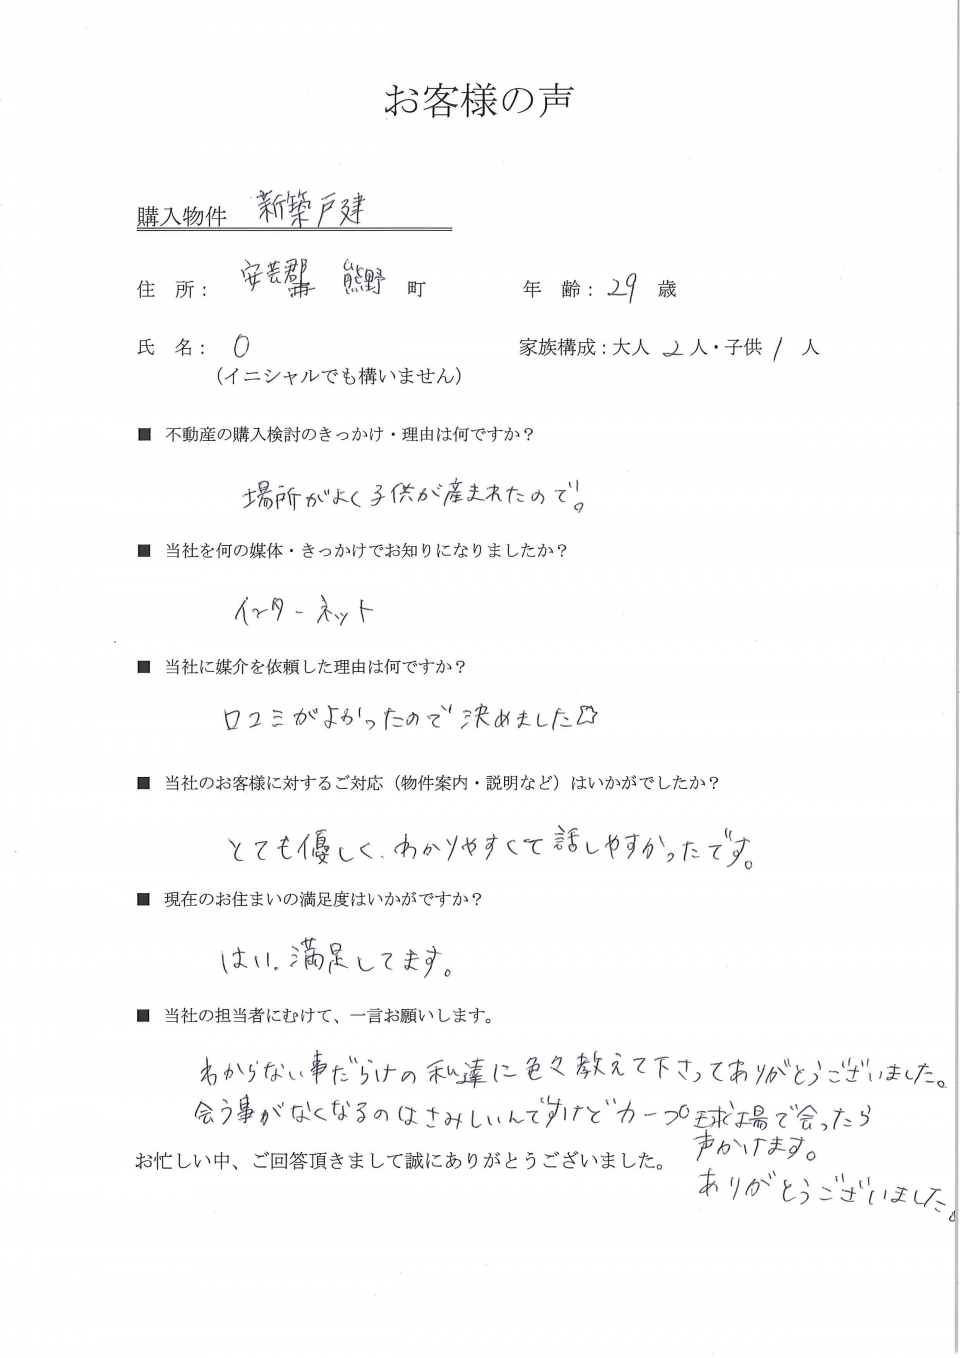 お客様の声
購入物件 新築戸建
住 所： 安芸郡 熊野 町 年 齢：29 歳
氏 名： O 家族構成：大人 2 人・子供 1 人
（イニシャルでも構いません）
■ 不動産の購入検討のきっかけ・理由は何ですか？
場所がよく子供が産まれたので。
■ 当社を何の媒体・きっかけでお知りになりましたか？
インターネット
■ 当社に媒介を依頼した理由は何ですか？
口コミがよかったので決めました☆
■ 当社のお客様に対するご対応（物件案内・説明など）はいかがでしたか？
とても優しく、わかりやすくて話しやすかったです。
■ 現在のお住まいの満足度はいかがですか？
はい、満足してます。
■ 当社の担当者にむけて、一言お願いします。
わからない事だらけの私達に色々教えて下さってありがとうございました。
会う事がなくなるのはさみしいんですけどカープ球場で会ったら
声かけます。
お忙しい中、ご回答頂きまして誠にありがとうございました。
ありがとうございました。